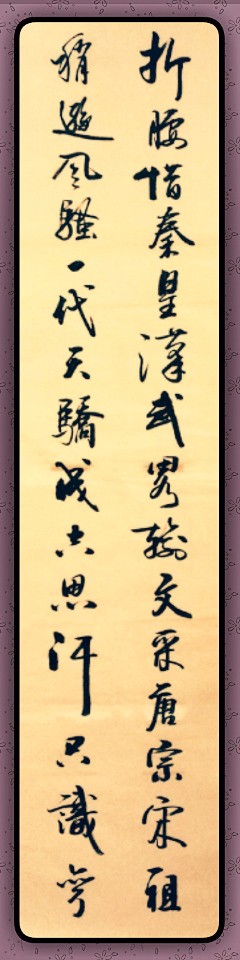 折腰惜秦皇漢武畧輸文采唐宗宋祖
稍遜风騷一代天驕成吉思汗只識弯